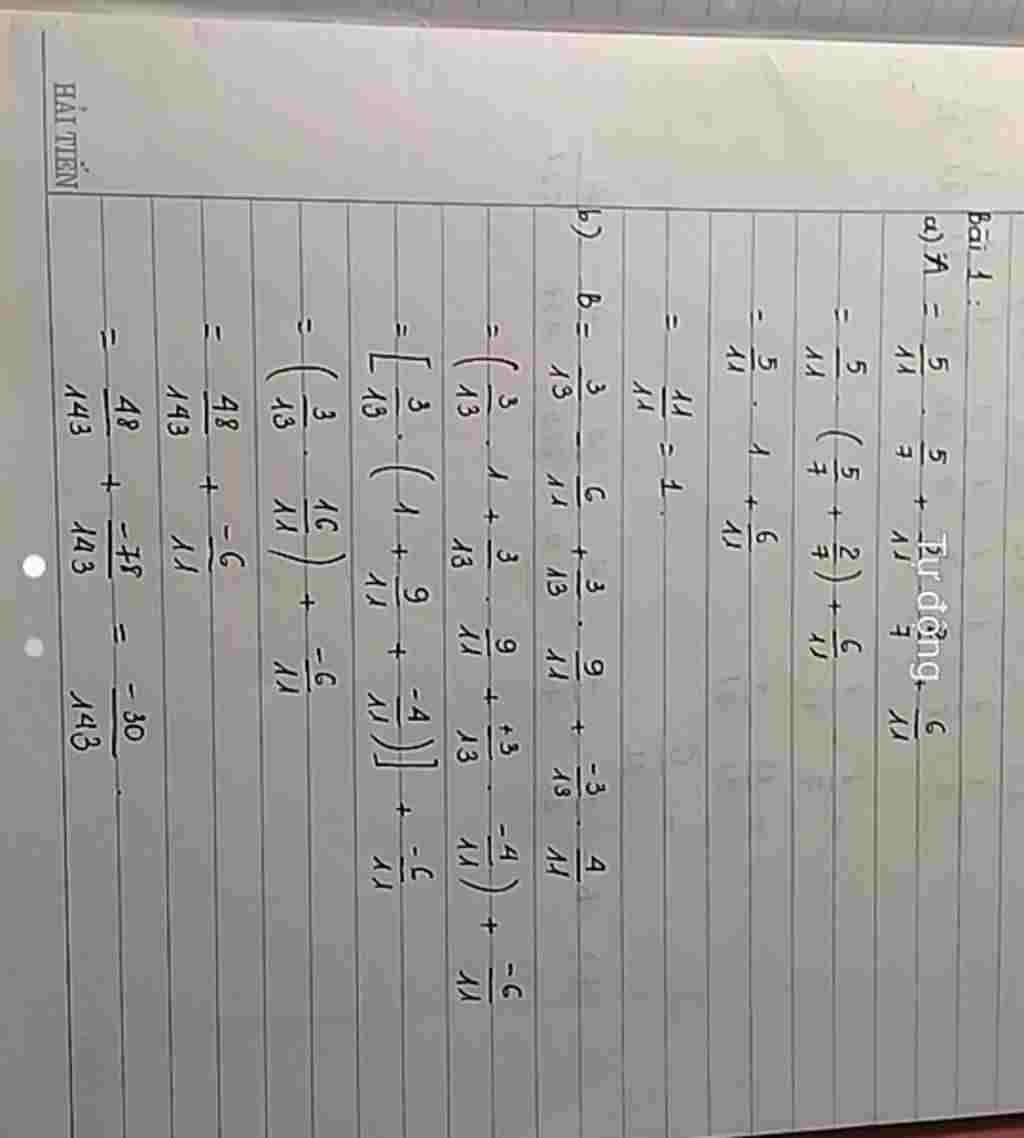 Bài 1:
a) A = 5/11 . 5/7 + 5/11 . 2/7 + 6/11
= 5/11 . (5/7 + 2/7) + 6/11
= 5/11 . 1 + 6/11
= 11/11 = 1.
b) B = 3/13 - 6/11 + 3/13 . 9/11 + -3/13 . 4/11
= (3/13 . 1 + 3/13 . 9/11 + +3/13 . -4/11) + -6/11
= [3/13 . (1 + 9/11 + -4/11)] + -6/11
= (3/13 . 16/11) + -6/11
= 48/143 + -6/11
= 48/143 + -78/143 = -30/143.
Tự động
HẢI TIẾN